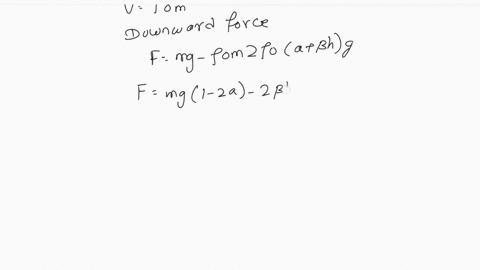 V = ρom
Downward force
F = mg - ρom2ρ0 (a+βh)g
F = mg (1-2a) - 2β